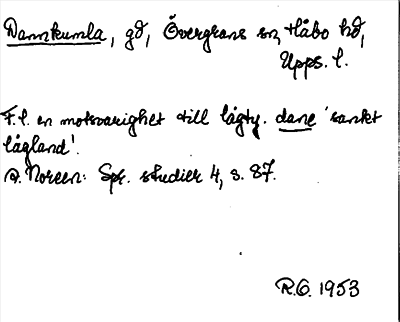 Dannkumla, gd, Övergrans sn, Håbo hd,
Upps. l.
F.l. en motsvarighet till lågty. dane 'sankt
lågland'.
A. Noreen: Spr. studier 4, s. 87.
R.O. 1953